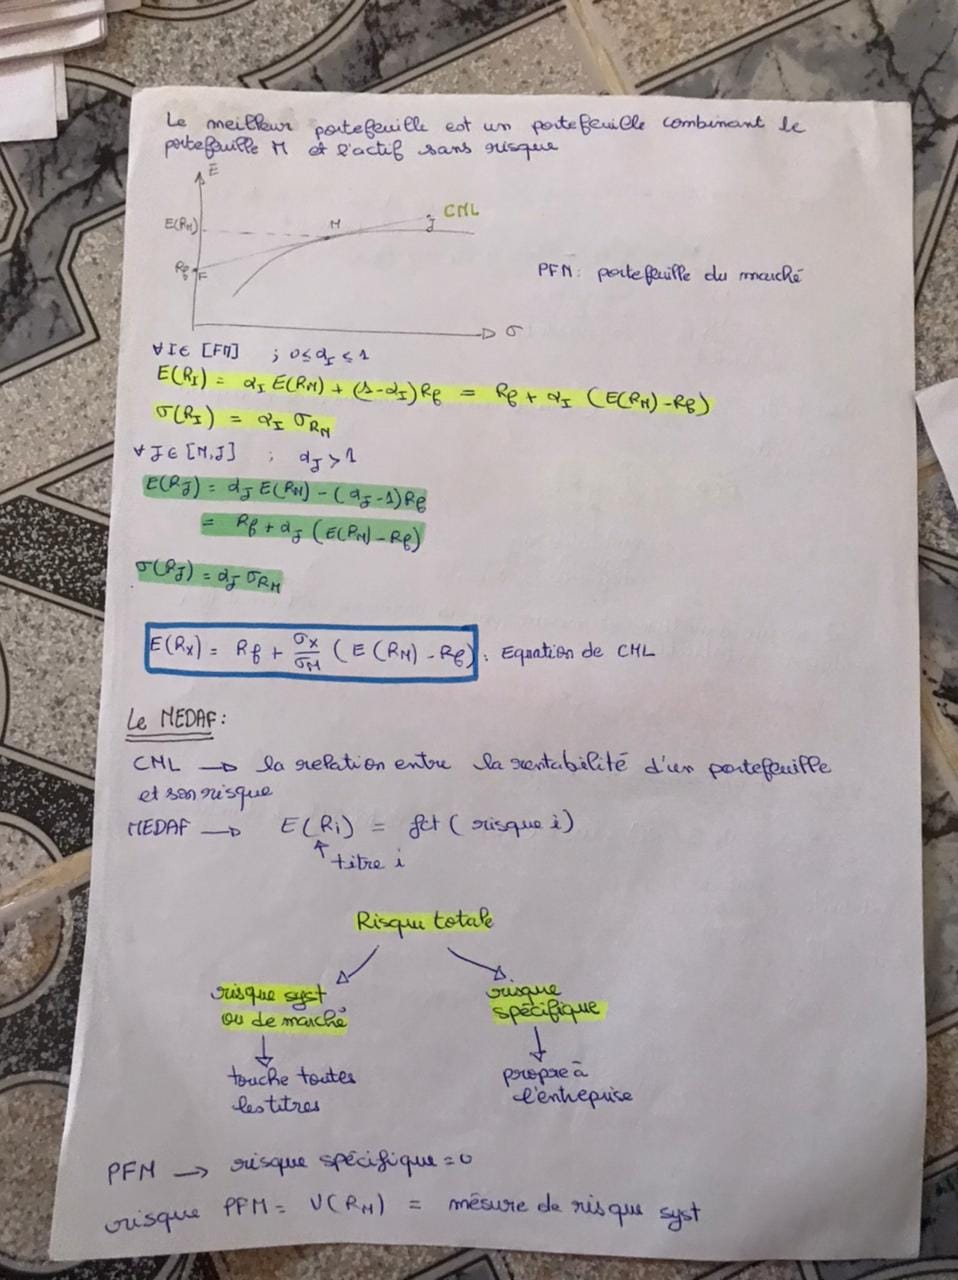 Le meilleur portefeuille est un portefeuille combinant le
portefeuille M et l'actif sans risque
E
CML
E(RM)
M
J
Rf
F
PFM: portefeuille du marché
σ
∀ I ∈ [FM] ; 0 ≤ α_I ≤ 1
E(R_I) = α_I E(R_M) + (1-α_I) R_f = R_f + α_I (E(R_M) - R_f)
σ(R_I) = α_I σ_{R_M}
∀ J ∈ [M,J] ; α_J > 1
E(R_J) = α_J E(R_M) - (α_J - 1) R_f
= R_f + α_J (E(R_M) - R_f)
σ(R_J) = α_J σ_{R_M}
E(R_X) = R_f + σ_X/σ_M (E(R_M) - R_f) : Equation de CML
Le MEDAF:
CML → la relation entre la rentabilité d'un portefeuille
et son risque
MEDAF → E(Ri) = fct (risque i)
↑ titre i
Risque totale
risque syst
ou de marché
risque
spécifique
touche toutes
les titres
propre à
l'entreprise
PFM → risque spécifique = 0
risque PFM = V(R_M) = mésure de risque syst